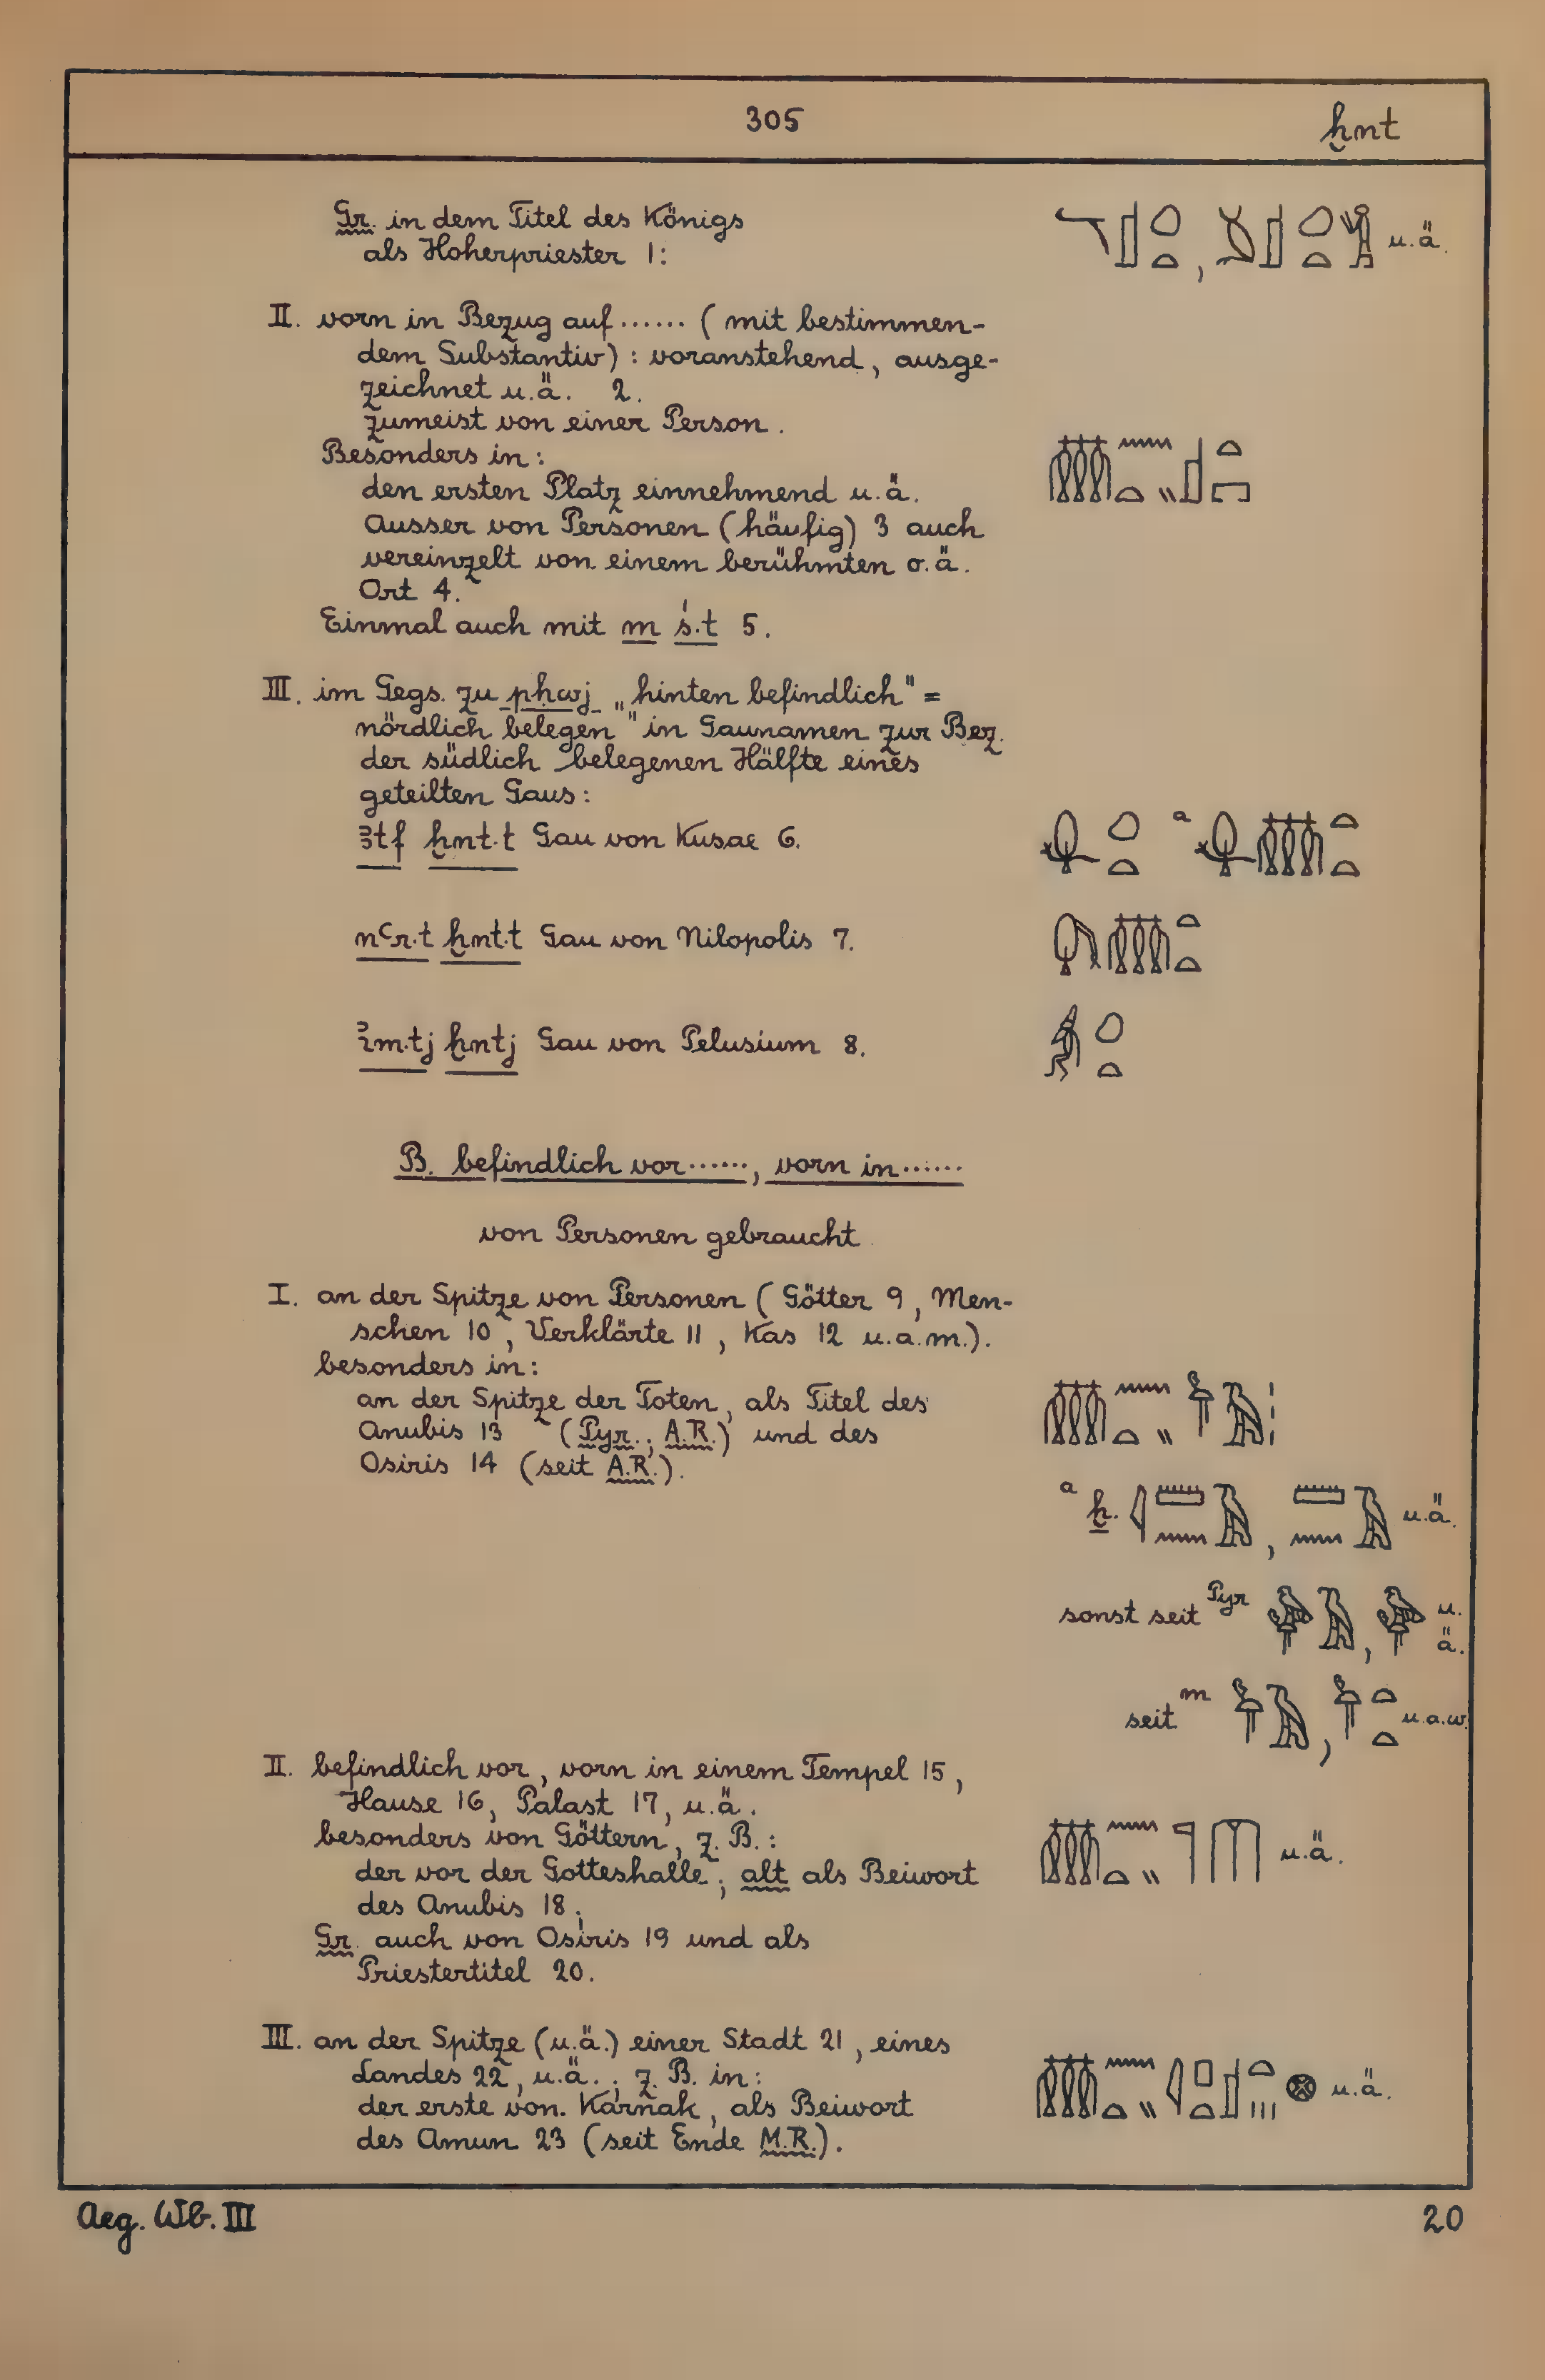 305
ḫnt
Gr. in dem Titel des Königs
als Hoherpriester 1:
u.ä.
II. vorn in Bezug auf ...... ( mit bestimmen-
dem Substantiv) : voranstehend, ausge-
zeichnet u.ä. 2.
zumeist von einer Person.
Besonders in:
den ersten Platz einnehmend u.ä.
Ausser von Personen (häufig) 3 auch
vereinzelt von einem berühmten o.ä.
Ort 4.
Einmal auch mit m ś.t 5.
III. im Gegs. zu pḥwj „hinten befindlich" =
nördlich belegen" in Gaunamen zur Bez.
der südlich belegenen Hälfte eines
geteilten Gaus:
ꜣtf ḫnt.t Gau von Kusae 6.
a
nꜥr.t ḫnt.t Gau von Nilopolis 7.
ꞽm.tj ḫntj Gau von Pelusium 8.
B. befindlich vor ......, vorn in ......
von Personen gebraucht.
I. an der Spitze von Personen ( Götter 9, Men-
schen 10, Verklärte 11, Kas 12 u.a.m.).
besonders in:
an der Spitze der Toten, als Titel des
Anubis 13 (Pyr.; A.R.) und des
Osiris 14 (seit A.R.).
a ḫ. , u.ä.
sonst seit Pyr , u.
ä.
seit m , u.a.w.
II. befindlich vor, vorn in einem Tempel 15,
Hause 16, Palast 17, u.ä.
besonders von Göttern, z.B.:
der vor der Gotteshalle; alt als Beiwort
u.ä.
des Anubis 18;
Gr. auch von Osiris 19 und als
Priestertitel 20.
III. an der Spitze (u.ä.) einer Stadt 21, eines
Landes 22, u.ä.; z.B. in:
der erste von Karnak, als Beiwort
u.ä.
des Amun 23 (seit Ende M.R.).
Aeg. Wb. III
20